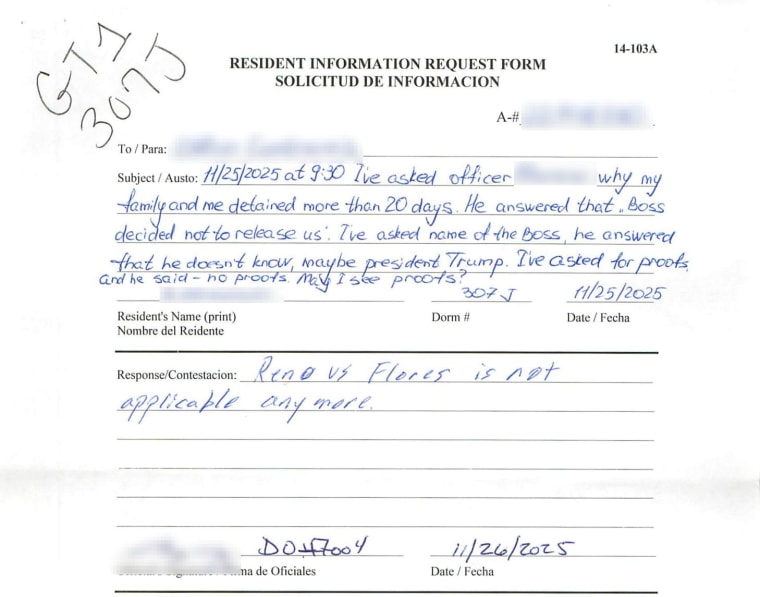 GT1
307J
14-103A
RESIDENT INFORMATION REQUEST FORM
SOLICITUD DE INFORMACION
A-#
To / Para:
Subject / Austo: 11/25/2025 at 9:30 I've asked officer why my
family and me detained more than 20 days. He answered that „Boss
decided not to release us'. I've asked name of the Boss, he answered
that he doesn't know, maybe president Trump. I've asked for proofs,
and he said - no proofs. May I see proofs?
307 J 11/25/2025
Resident's Name (print) Dorm # Date / Fecha
Nombre del Reidente
Response/Contestacion: Reno vs Flores is not
applicable any more.
11/26/2025
ma de Oficiales Date / Fecha